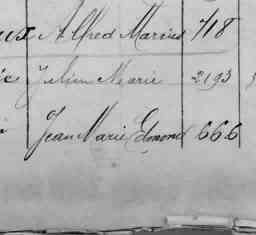 ux Alfred Marius 718
Julien Marie 2193
Jean Marie Edmond 666